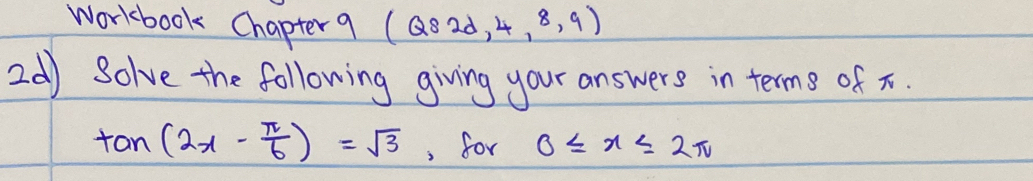 Workbook Chapter 9 (Qs 2d, 4, 8, 9)
2d) Solve the following giving your answers in terms of π.
tan (2x - π/6) = √3, for 0 ≤ x ≤ 2π